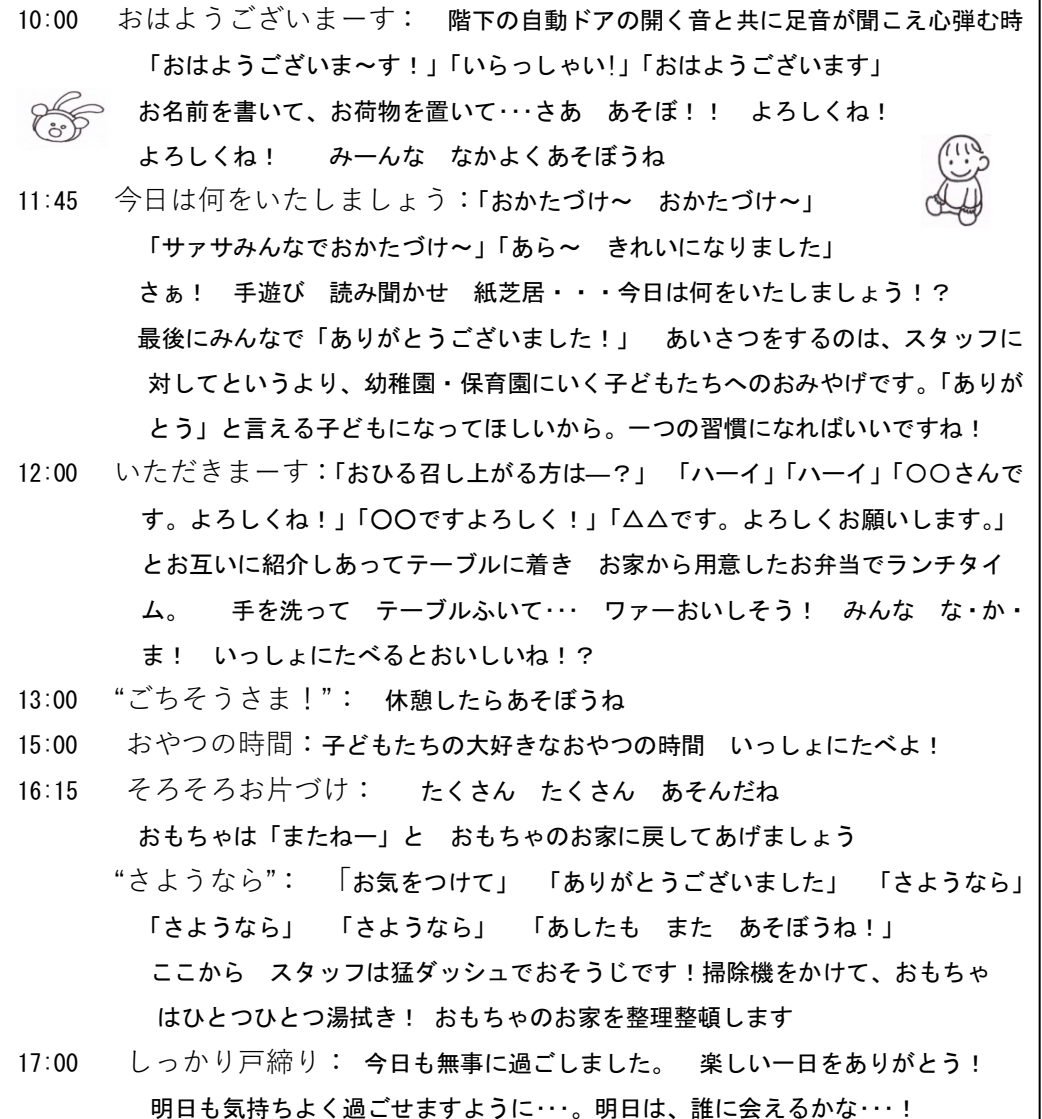 10:00 おはようございまーす： 階下の自動ドアの開く音と共に足音が聞こえ心弾む時
「おはようございま～す！」「いらっしゃい!」「おはようございます」
お名前を書いて、お荷物を置いて･･･さあ あそぼ！！ よろしくね！
よろしくね！ みーんな なかよくあそぼうね
11:45 今日は何をいたしましょう：「おかたづけ～ おかたづけ～」
「サァサみんなでおかたづけ～」「あら～ きれいになりました」
さぁ！ 手遊び 読み聞かせ 紙芝居・・・今日は何をいたしましょう！？
最後にみんなで「ありがとうございました！」 あいさつをするのは、スタッフに
対してというより、幼稚園・保育園にいく子どもたちへのおみやげです。「ありが
とう」と言える子どもになってほしいから。一つの習慣になればいいですね！
12:00 いただきまーす：「おひる召し上がる方は―？」 「ハーイ」「ハーイ」「〇〇さんで
す。よろしくね！」「〇〇ですよろしく！」「△△です。よろしくお願いします。」
とお互いに紹介しあってテーブルに着き お家から用意したお弁当でランチタイ
ム。 手を洗って テーブルふいて･･･ ワァーおいしそう！ みんな な・か・
ま！ いっしょにたべるとおいしいね！？
13:00 “ごちそうさま！”： 休憩したらあそぼうね
15:00 おやつの時間：子どもたちの大好きなおやつの時間 いっしょにたべよ！
16:15 そろそろお片づけ： たくさん たくさん あそんだね
おもちゃは「またねー」と おもちゃのお家に戻してあげましょう
“さようなら”： 「お気をつけて」 「ありがとうございました」 「さようなら」
「さようなら」 「さようなら」 「あしたも また あそぼうね！」
ここから スタッフは猛ダッシュでおそうじです！掃除機をかけて、おもちゃ
はひとつひとつ湯拭き！ おもちゃのお家を整理整頓します
17:00 しっかり戸締り： 今日も無事に過ごしました。 楽しい一日をありがとう！
明日も気持ちよく過ごせますように･･･。明日は、誰に会えるかな･･･！